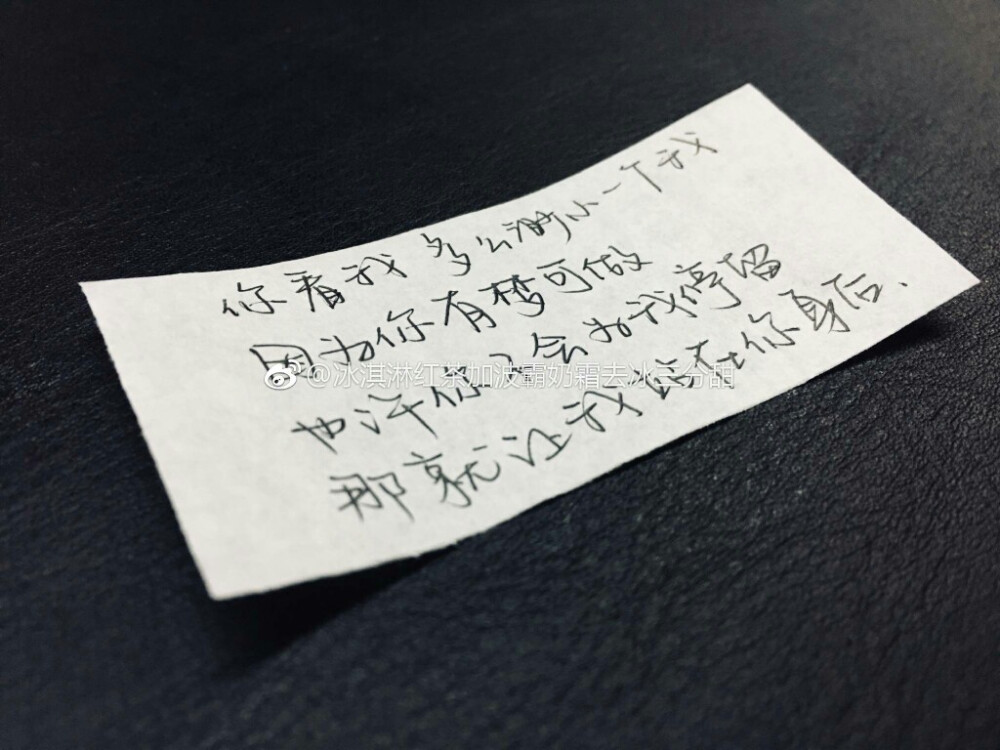 你看我多么渺小一个我
因为你有梦可做
也许你不会为我停留
那就让我站在你身后.
@冰淇淋红茶加波霸奶霜去冰三分甜